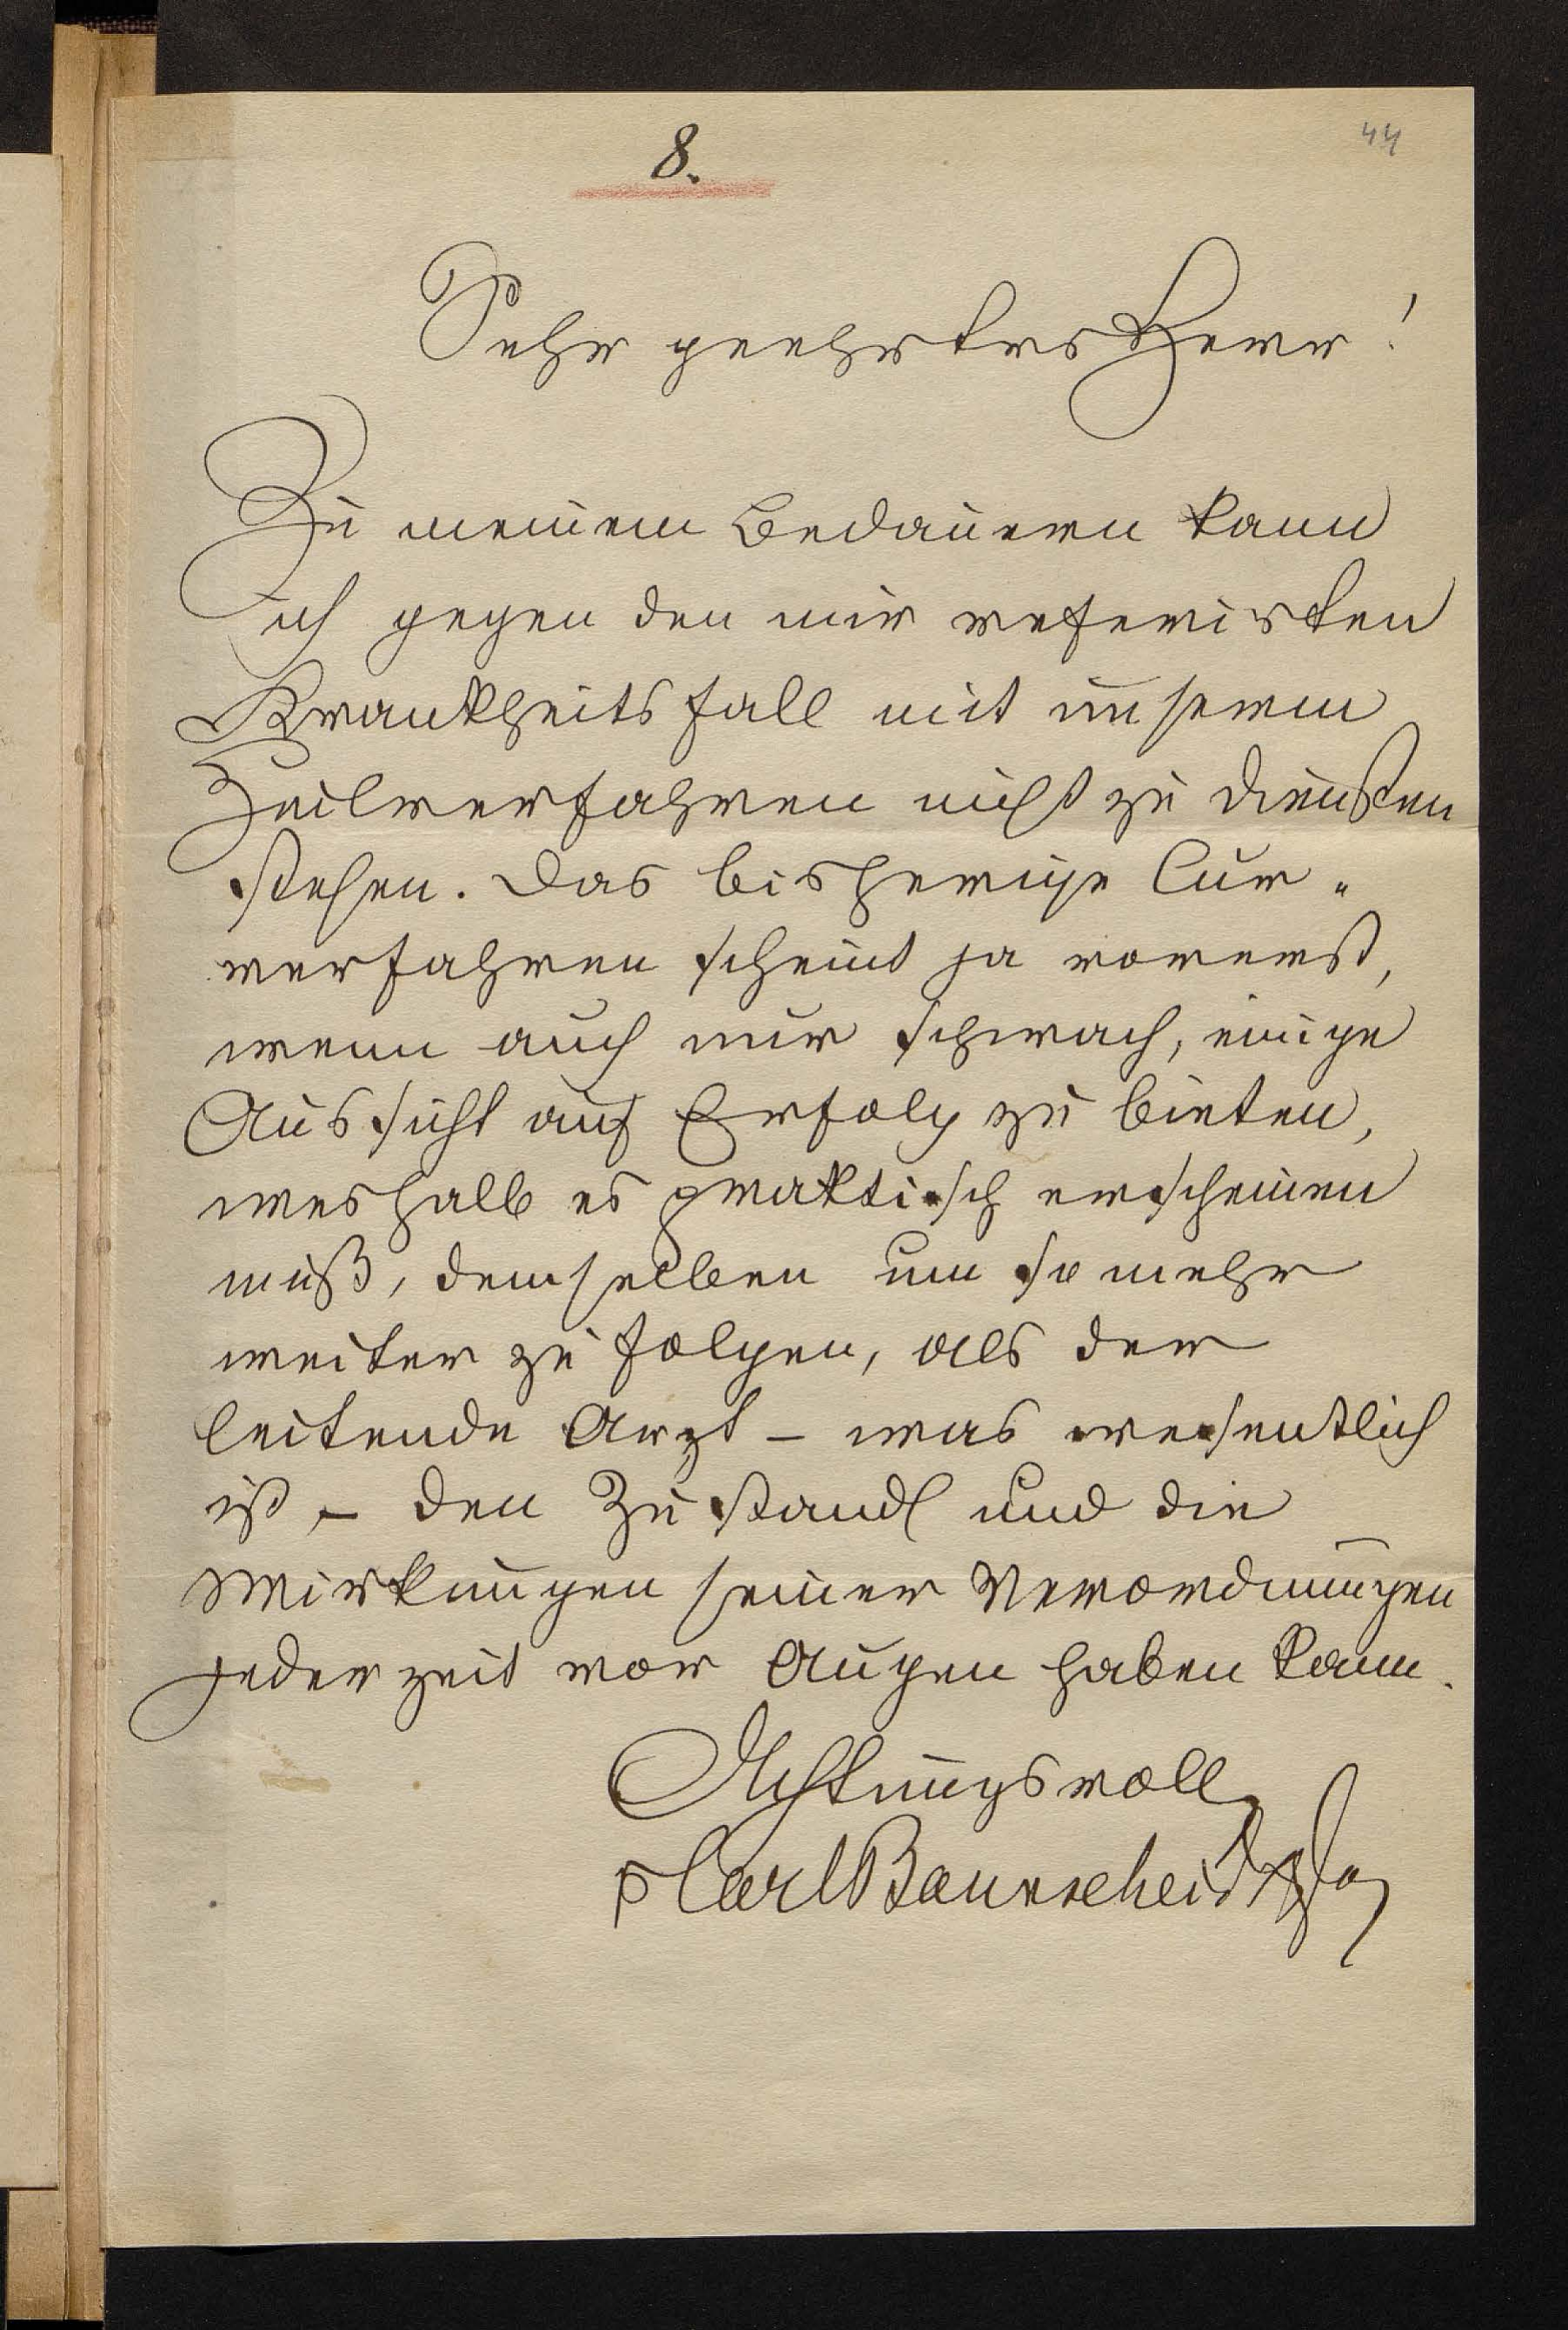 44
8.
Sehr geehrter Herr!
Zu meinem Bedauern kann
ich gegen den mir referirten
Krankheitsfall mit unserem
Heilverfahren nicht zu Diensten
stehen. Das bisherige Cur-
verfahren scheint ja vorerst,
wenn auch nur schwach, einige
Aussicht auf Erfolg zu bieten,
weshalb es praktisch erscheinen
muß, demselben um so mehr
weiter zu folgen, als der
leitende Arzt – was wesentlich
ist – den Zustand und die
Wirkungen seiner Verordnungen
jederzeit vor Augen haben kann.
Achtungsvoll
Carl Baunscheidt